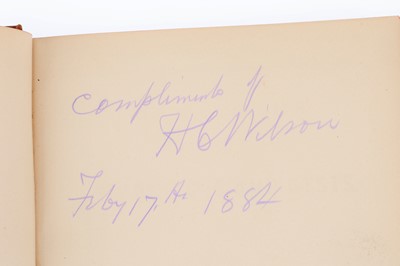 Compliments of
H C Wilson
Feby 17th 1884